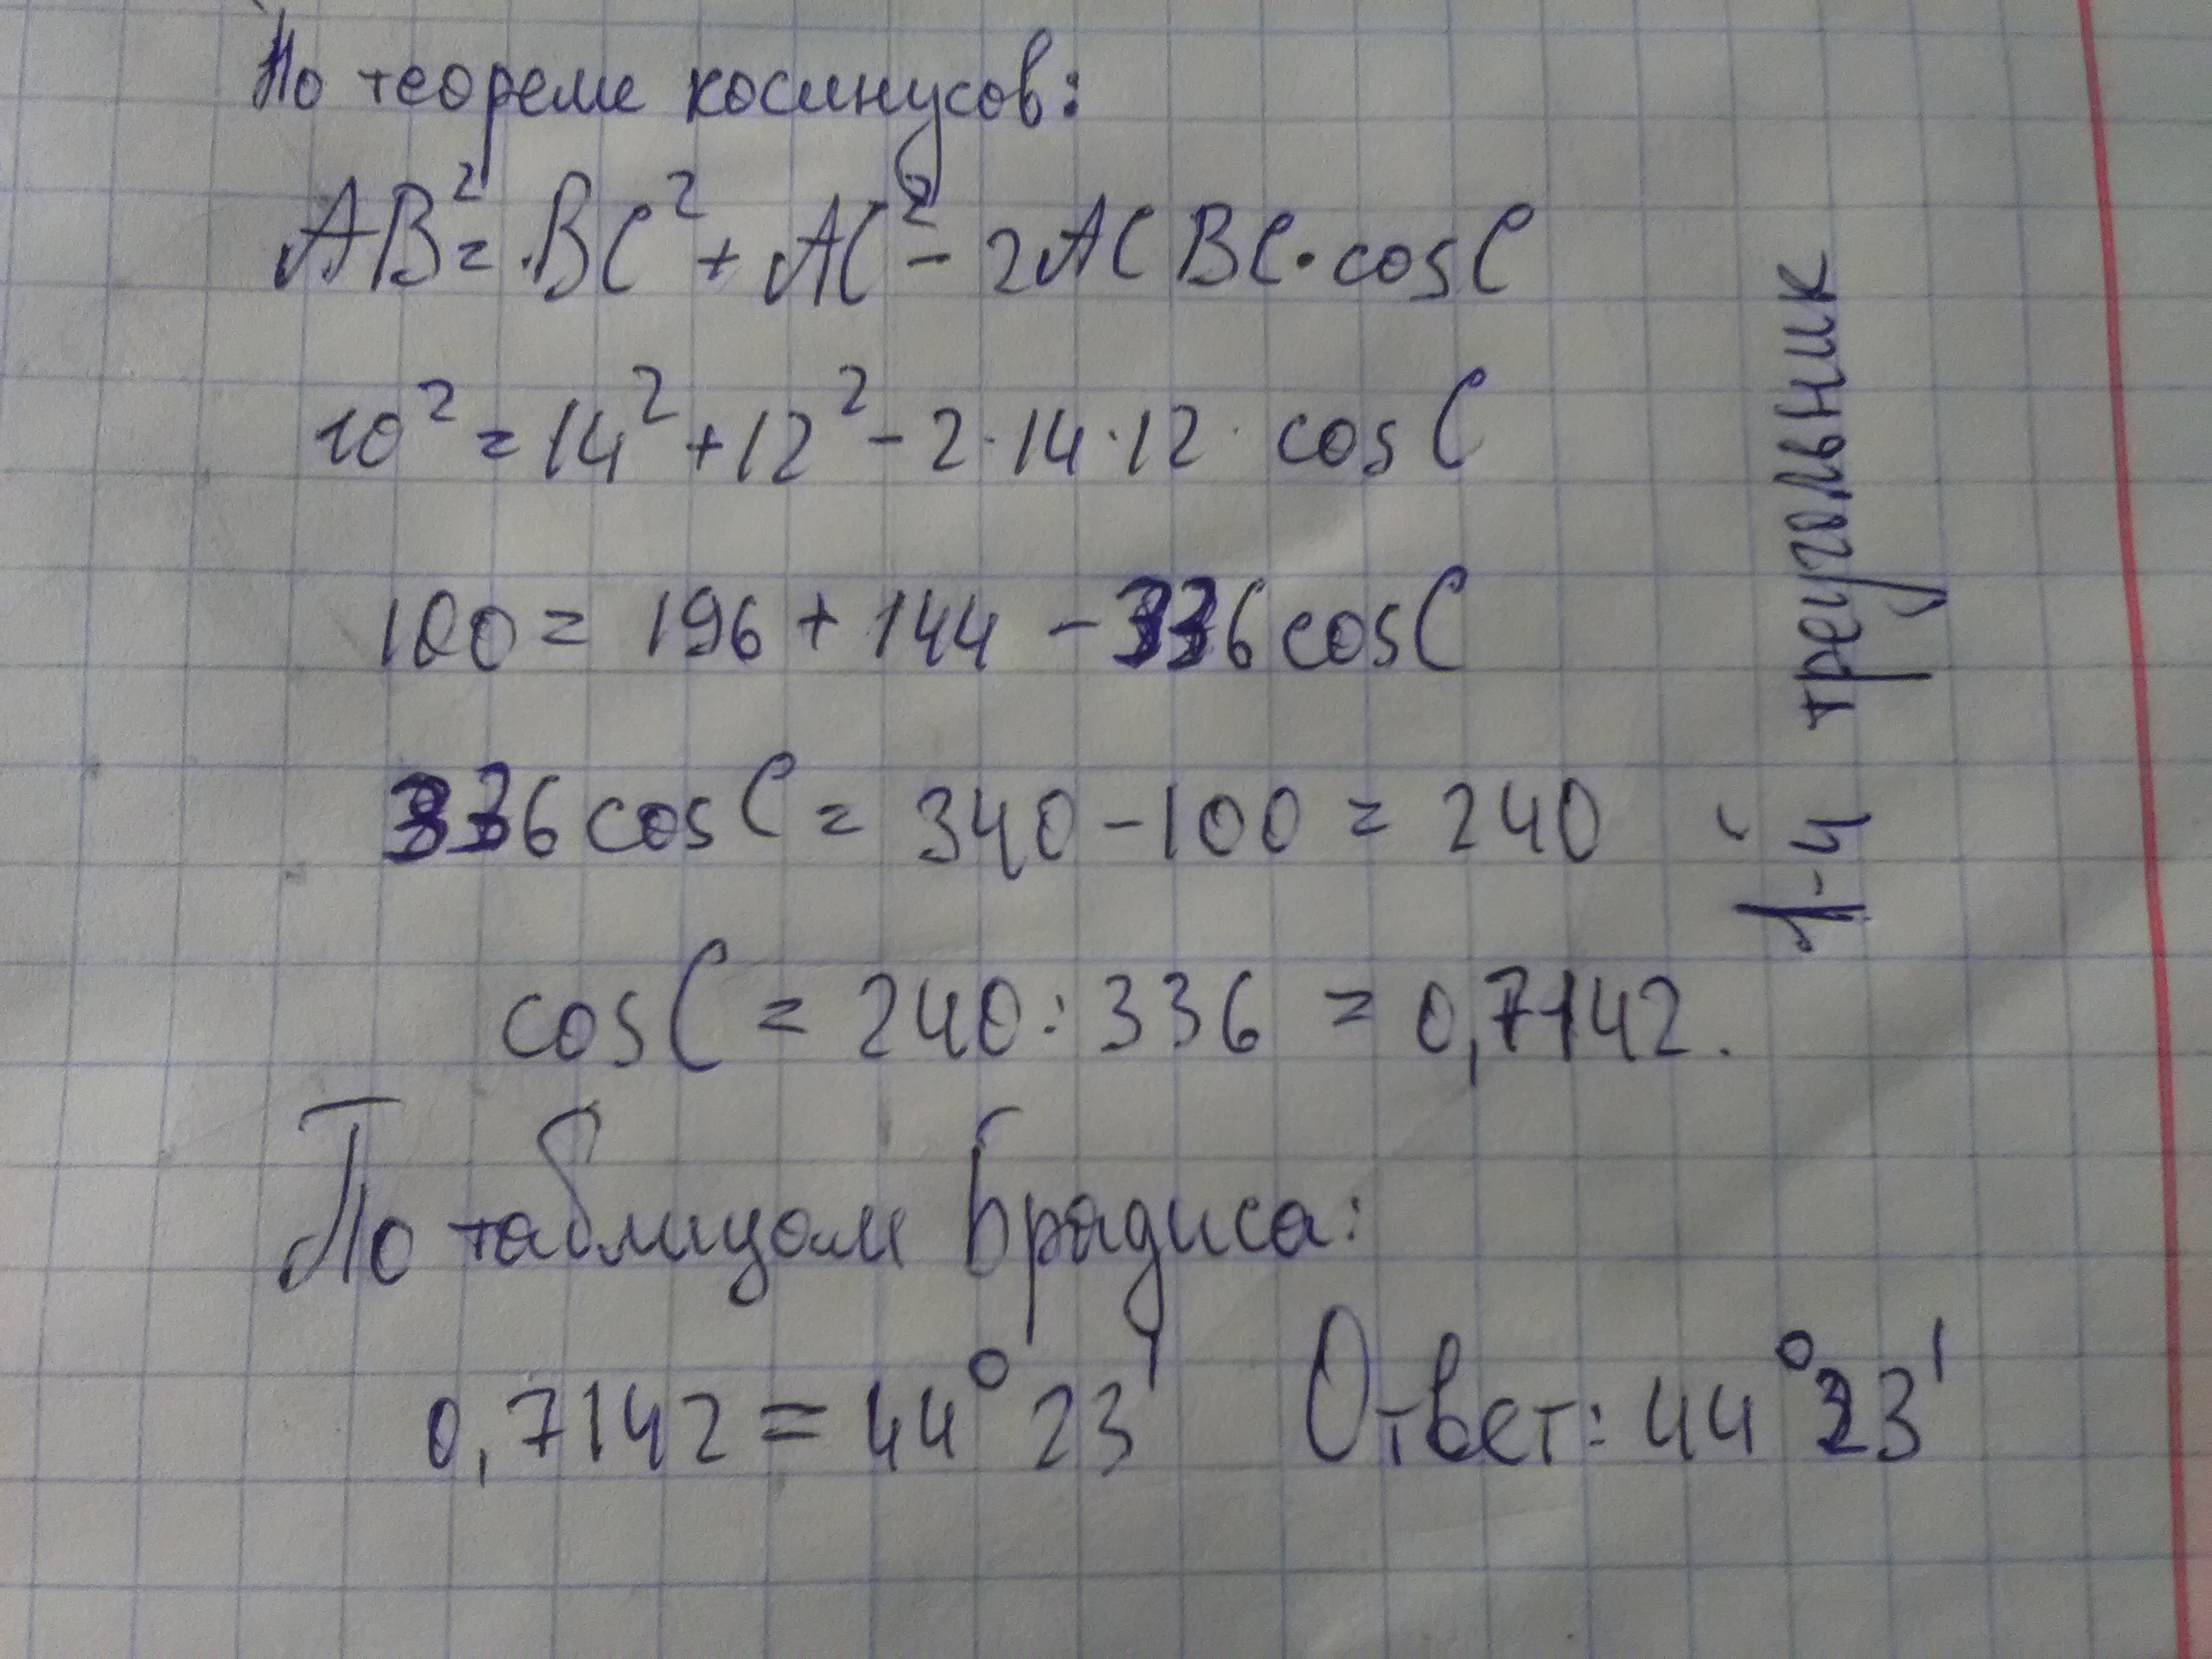 По теореме косинусов:
AB² = BC² + AC² - 2AC BC · cos C
10² = 14² + 12² - 2 · 14 · 12 · cos C
100 = 196 + 144 - 336 cos C
336 cos C = 340 - 100 = 240
cos C = 240 : 336 = 0,7142.
По таблицам Брадиса:
0,7142 = 44° 23' Ответ: 44° 23'
1-й треугольник